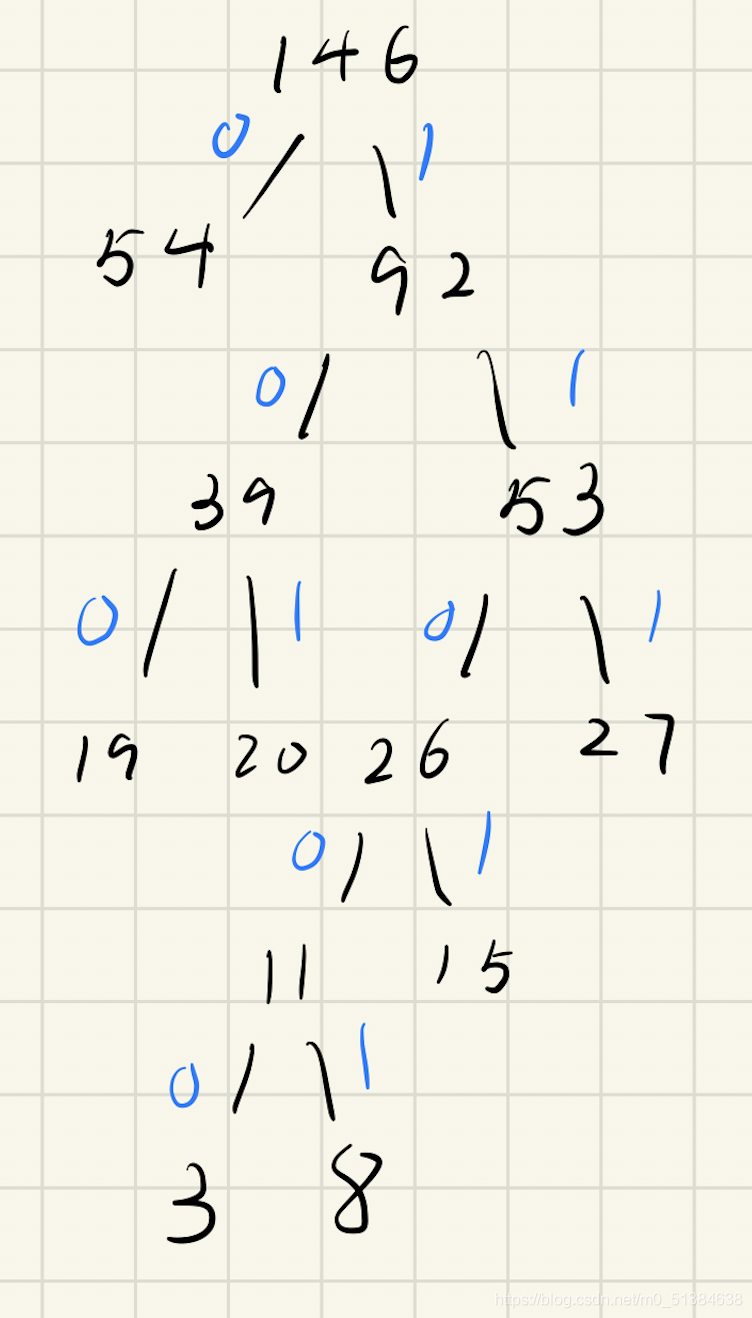 146
0 1
54 92
0 1
39 53
0 1 0 1
19 20 26 27
0 1
11 15
0 1
3 8
https://blog.csdn.net/m0_51384638